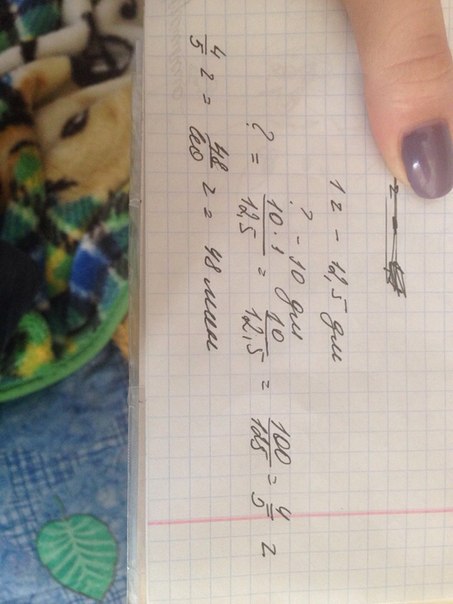 1 ч - 12,5 дм
? - 10 дм
? = 10 · 1 / 12,5 = 10 / 12,5 = 100 / 125 = 4 / 5 ч
4 / 5 ч = 48 / 60 ч = 48 мин